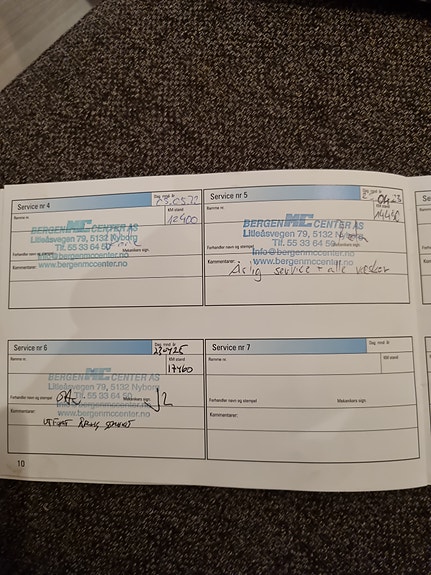 Service nr 4
Dag mnd år
Ramme nr.
KM stand
12400
BERGEN MC CENTER AS
Litleåsvegen 79, 5132 Nyborg
Tlf. 55 33 64 50
Forhandler navn og stempel
Mekanikers sign.
info@bergenmccenter.no
Kommentarer:
www.bergenmccenter.no
Service nr 5
Dag mnd år
04 23
Ramme nr.
KM stand
BERGEN MC CENTER AS
Litleåsvegen 79, 5132 Nyborg
Tlf. 55 33 64 50
Forhandler navn og stempel
Mekanikers sign.
info@bergenmccenter.no
Kommentarer:
www.bergenmccenter.no
Årlig service + alle væsker
Service nr 6
Dag mnd år
230425
Ramme nr.
KM stand
17460
BERGEN MC CENTER AS
Litleåsvegen 79, 5132 Nyborg
Tlf. 55 33 64 50
Forhandler navn og stempel
Mekanikers sign.
Kommentarer:
www.bergenmccenter.no
Service nr 7
Dag mnd år
Ramme nr.
KM stand
Forhandler navn og stempel
Mekanikers sign.
Kommentarer:
10